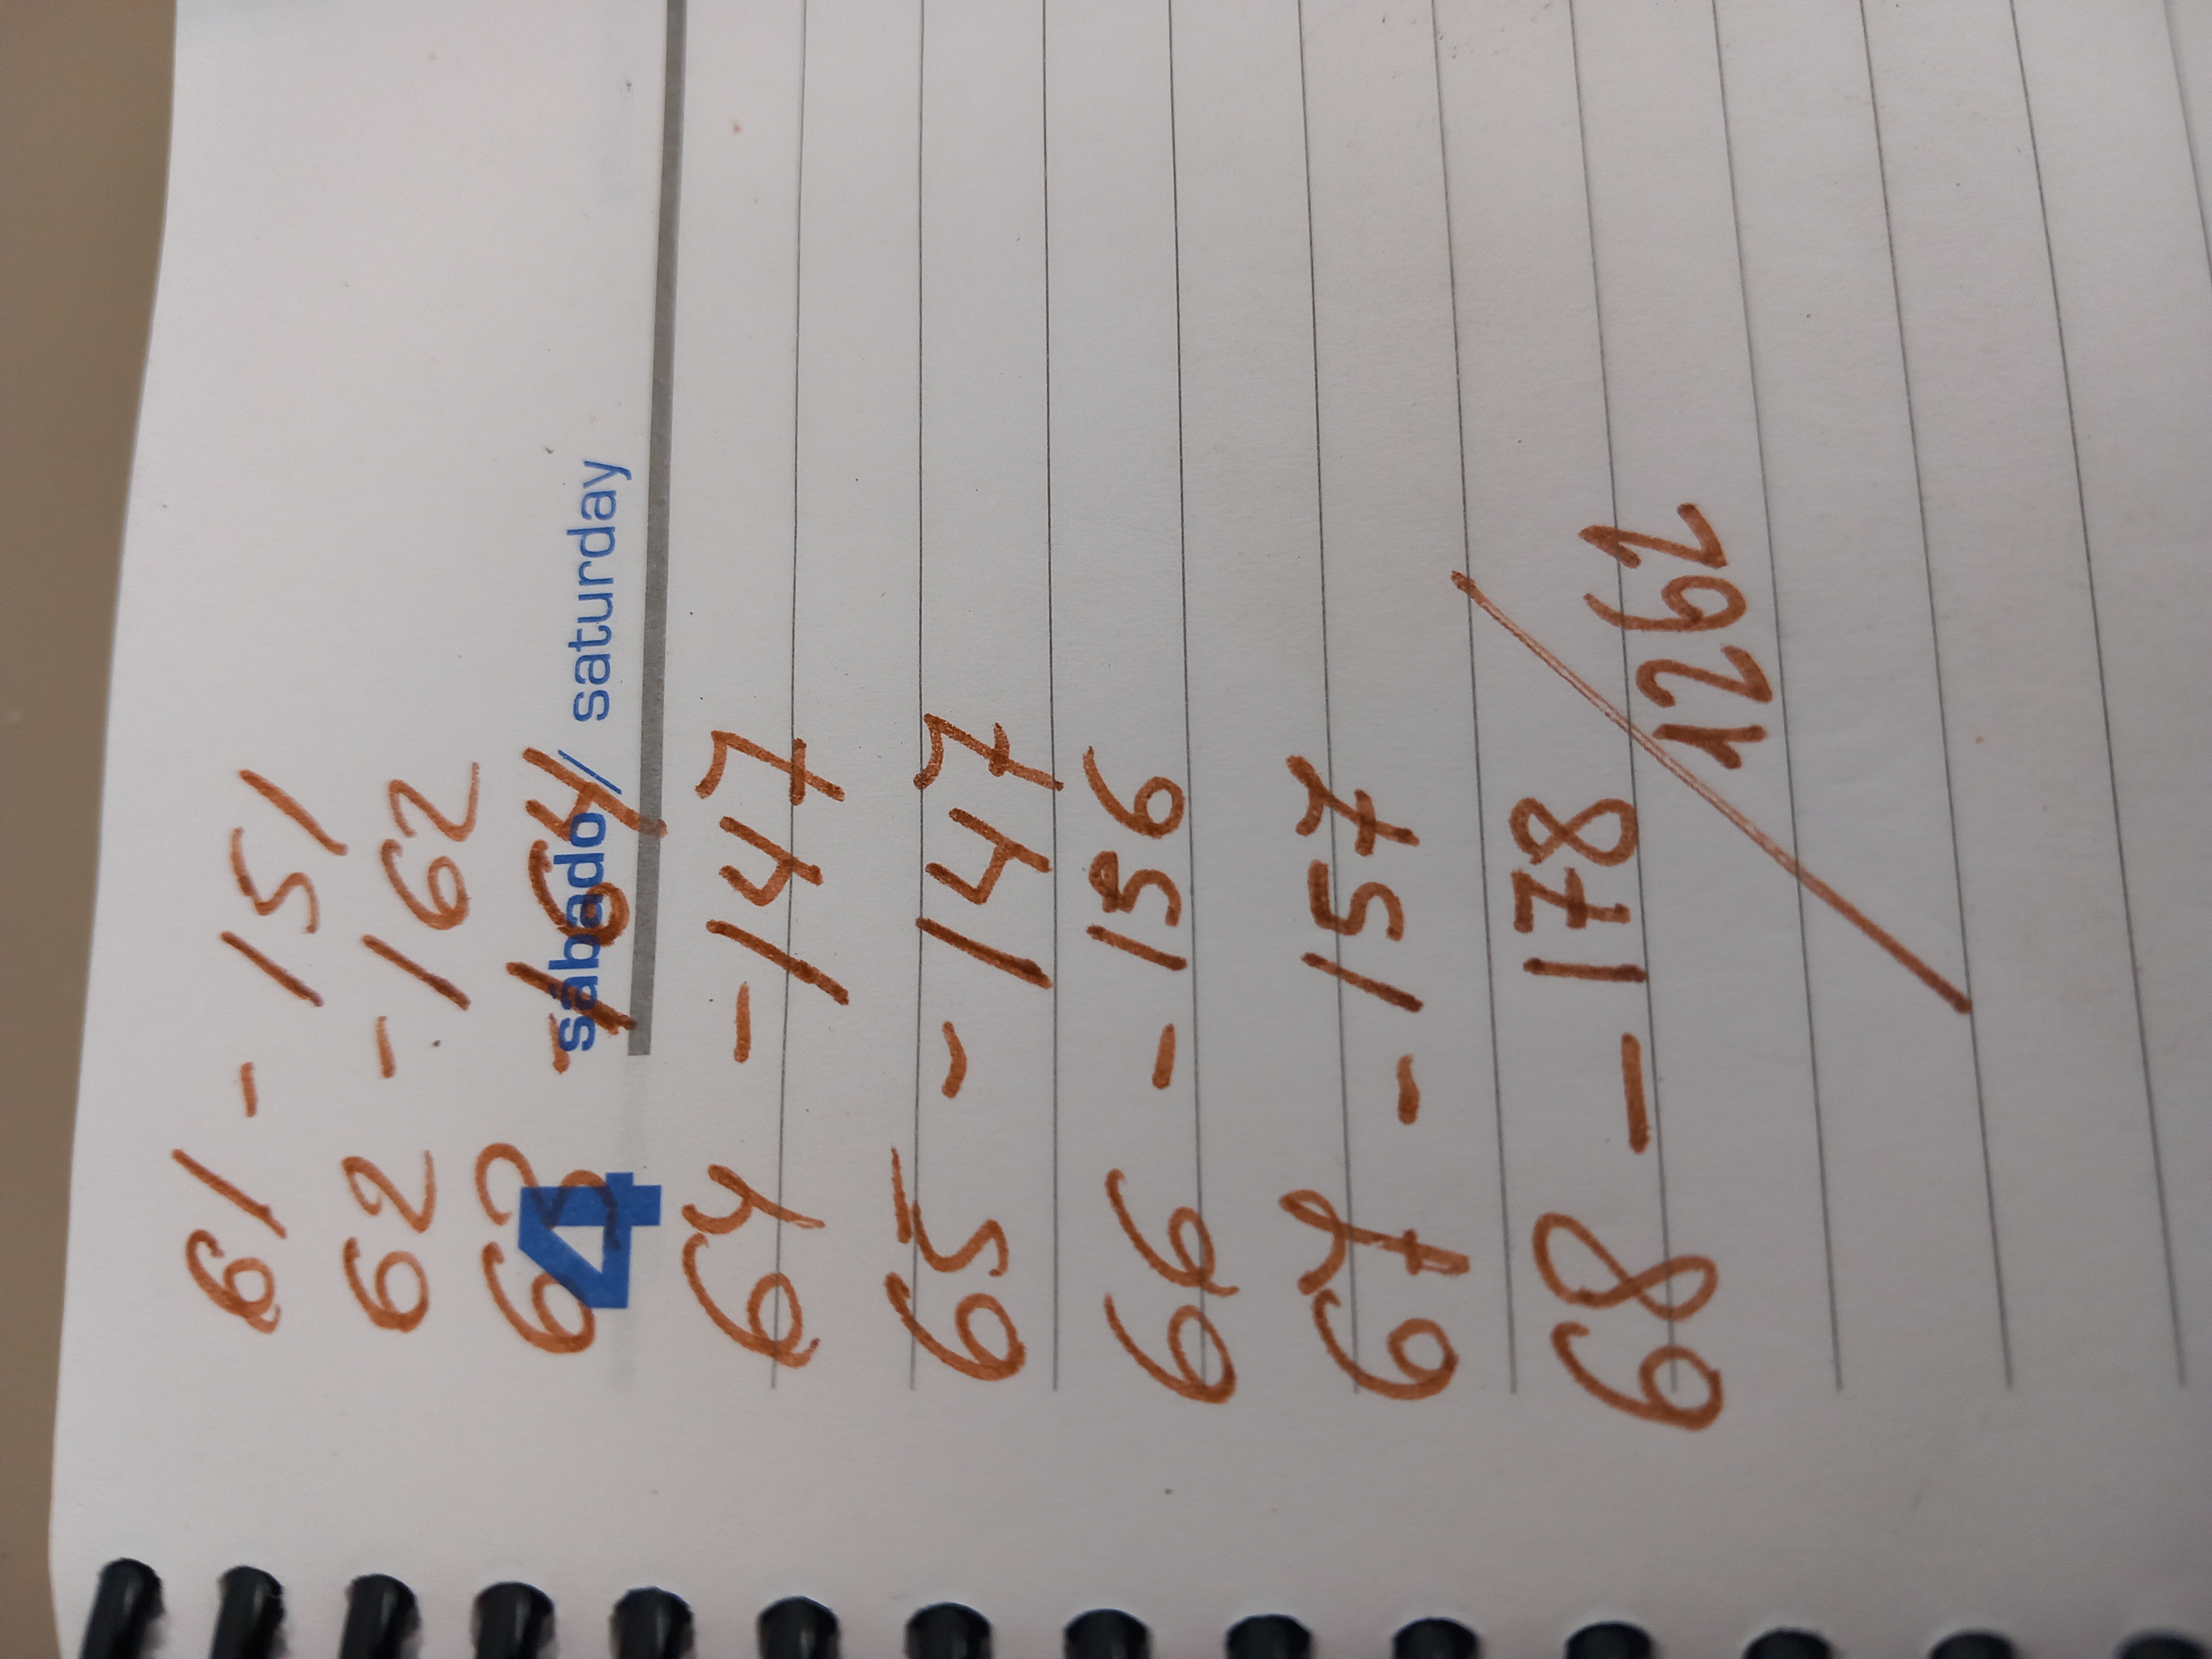 61 - 151
62 - 162
63 - 164
4 sábado / saturday
64 - 147
65 - 147
66 - 156
67 - 157
68 - 178
1262